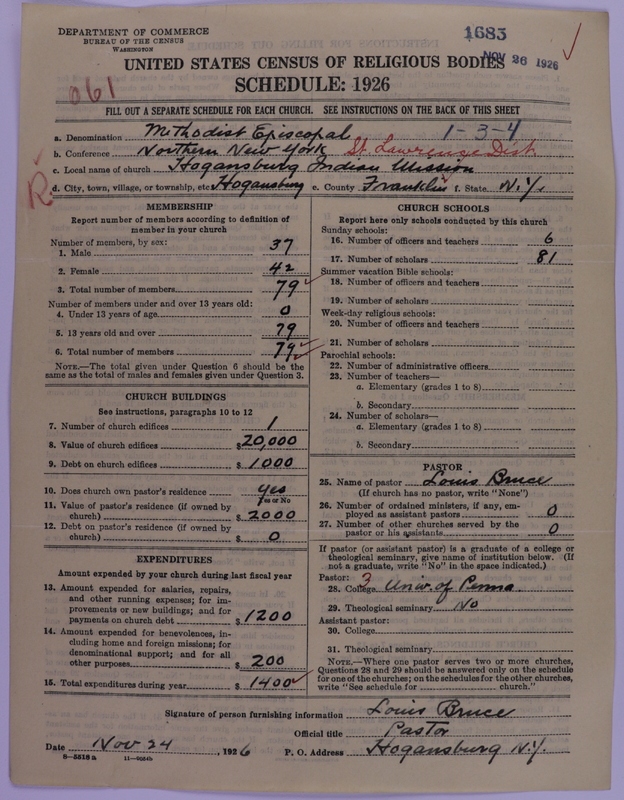 DEPARTMENT OF COMMERCE
BUREAU OF THE CENSUS
WASHINGTON
1683
NOV 26 1926
UNITED STATES CENSUS OF RELIGIOUS BODIES
SCHEDULE: 1926
061
FILL OUT A SEPARATE SCHEDULE FOR EACH CHURCH. SEE INSTRUCTIONS ON THE BACK OF THIS SHEET
a. Denomination Methodist Episcopal 1-3-4
b. Conference Northern New York St. Lawrence Dist.
c. Local name of church Hogansburg Indian Mission
d. City, town, village, or township, etc. Hogansburg e. County Franklin f. State N.Y.
R
MEMBERSHIP
Report number of members according to definition of
member in your church
Number of members, by sex:
1. Male 37
2. Female 42
3. Total number of members 79
Number of members under and over 13 years old:
4. Under 13 years of age 0
5. 13 years old and over 79
6. Total number of members 79
NOTE.—The total given under Question 6 should be
same as the total of males and females given under Question 3.
CHURCH BUILDINGS
See instructions, paragraphs 10 to 12
7. Number of church edifices 1
8. Value of church edifices $20,000
9. Debt on church edifices $ 1000
10. Does church own pastor's residence yes
Yes or No
11. Value of pastor's residence (if owned by
church) $ 2000
12. Debt on pastor's residence (if owned by
church) $ 0
EXPENDITURES
Amount expended by your church during last fiscal year
13. Amount expended for salaries, repairs,
and other running expenses; for im-
provements or new buildings; and for
payments on church debt $ 1200
14. Amount expended for benevolences, in-
cluding home and foreign missions; for
denominational support; and for all
other purposes $ 200
15. Total expenditures during year $ 1400
CHURCH SCHOOLS
Report here only schools conducted by this church
Sunday schools:
16. Number of officers and teachers 6
17. Number of scholars 81
Summer vacation Bible schools:
18. Number of officers and teachers
19. Number of scholars
Week-day religious schools:
20. Number of officers and teachers
21. Number of scholars
Parochial schools:
22. Number of administrative officers
23. Number of teachers—
a. Elementary (grades 1 to 8)
b. Secondary
24. Number of scholars—
a. Elementary (grades 1 to 8)
b. Secondary
PASTOR
25. Name of pastor Louis Bruce
(If church has no pastor, write "None")
26. Number of ordained ministers, if any, em-
ployed as assistant pastors 0
27. Number of other churches served by the
pastor or his assistants 0
If pastor (or assistant pastor) is a graduate of a college or
theological seminary, give name of institution below. (If
not a graduate, write "No" in the space indicated.)
Pastor: 3
28. College Univ. of Penna.
29. Theological seminary No
Assistant pastor:
30. College
31. Theological seminary
NOTE.—Where one pastor serves two or more churches,
Questions 28 and 29 should be answered only on the schedule
for one of the churches; on the schedules for the other churches,
write "See schedule for church."
Signature of person furnishing information Louis Bruce
Official title Pastor
Date Nov 24, 1926 P. O. Address Hogansburg N.Y.
8—5518 a